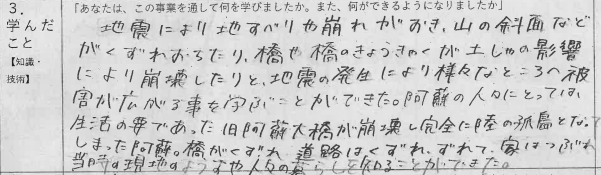 3.
学んだ
こと
【知識・
技術】
「あなたは、この事業を通して何を学びましたか。また、何ができるようになりましたか」
地震により地すべりや崩れがおき、山の斜面など
がくずれおちたり、橋や橋のきょうきゃくが土しゃの影響
により崩壊したりと、地震の発生により様々なところへ被
害が広がる事を学ぶことができた。阿蘇の人々にとっては、
生活の要であった旧阿蘇大橋が崩壊し完全に陸の孤島となって
しまった阿蘇。橋がくずれ、道路はくずれ、ずれて、家はつぶれ
当時の現地のようすや人々の暮らしを知ることができた。